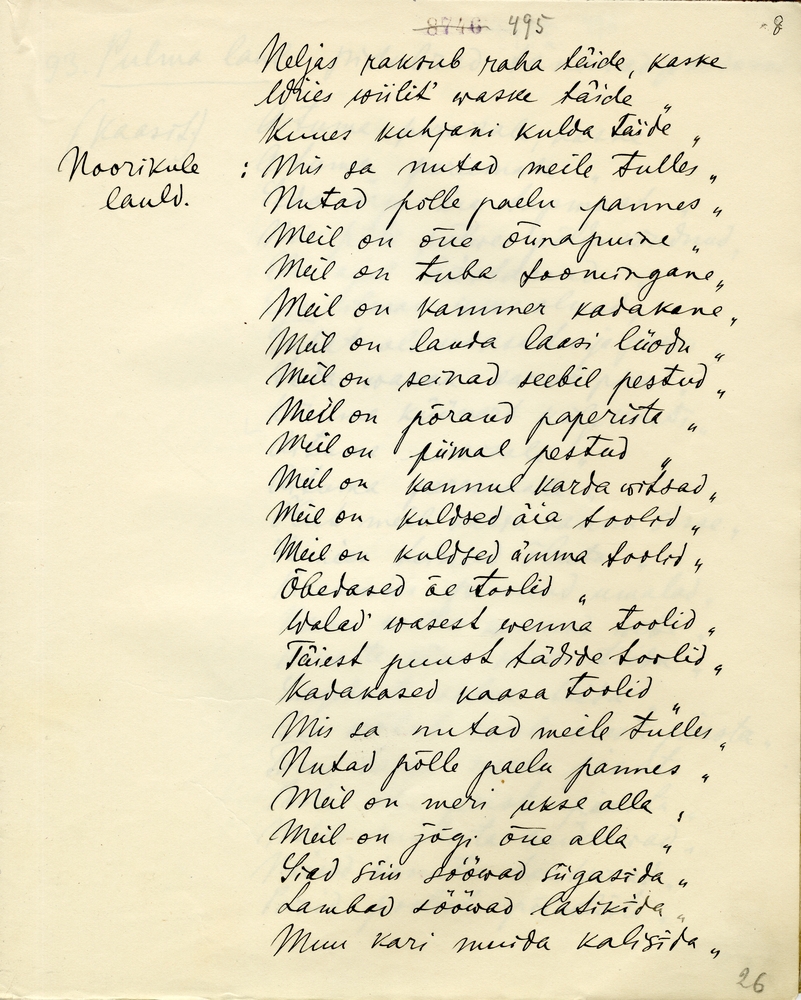 8746 495 8
Neljas raksub raha täide, kaske
Wiies wiilit' waske täide "
Kuues kuhjani kulda täide "
Noorikule : Mis sa nutad meile tulles "
lauld. Nutad põlle paelu pannes "
Meil on õue õunapuine "
Meil on tuba toomingane "
Meil on kammer kadakane "
Meil on lauda laasi lüödu "
Meil on seinad seebil pestud "
Meil on põrand paperista "
Meil on piimal pestud "
Meil on kannul karda witsad "
Meil on kuldsed äia toolid "
Meil on kuldsed ämma toolid "
Õbedased äe toolid "
Walad' wasest wenna toolid "
Täiest puust tädide toolid "
Kadakased kaasa toolid "
Mis sa nutad meile tulles "
Nutad põlle paelu pannes "
Meil on meri ukse alla "
Meil on jõgi õue alla "
Siad siis sööwad siigasida "
Lambad sööwad latikida "
Muu kari muida kalisida "
26